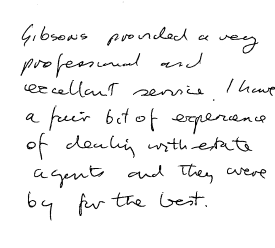 Gibsons provided a very
professional and
excellent service. I have
a fair bit of experience
of dealing with estate
agents and they were
by far the best.